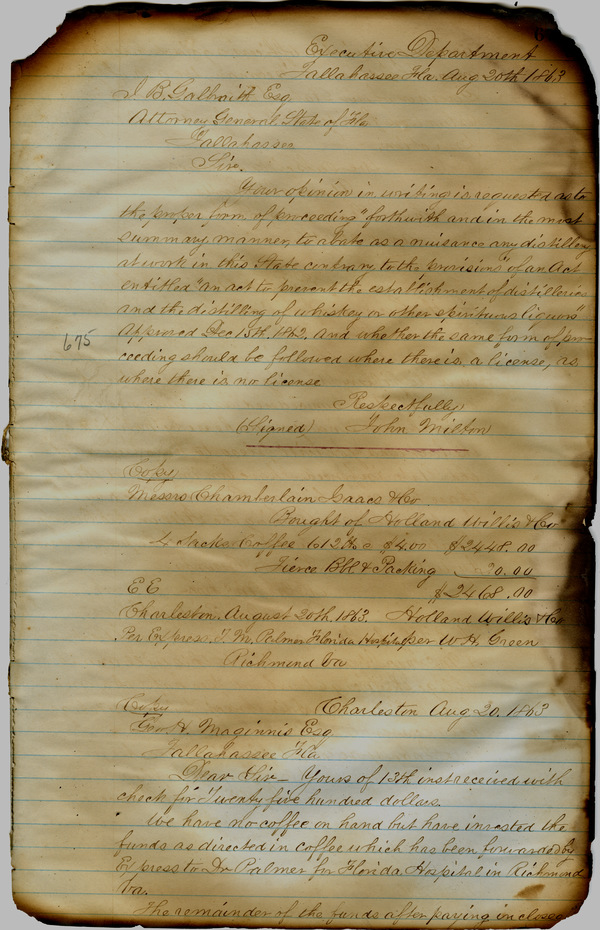 Executive Department
Tallahassee Fla. Aug 20th 1863
J B. Galbraith Esq.
Attorney General State of Fla
Tallahassee
Sir,
Your opinion in writing is requested as to
the proper form of proceeding "forthwith and in the most
summary manner, to abate as a nuisance any distillery
at work in this State contrary to the provisions" of an Act
entitled "an act to prevent the establishment of distilleries
and the distilling of whiskey or other spirituous liquors"
Approved Dec 15th, 1862, and whether the same form of pro-
675
ceeding should be followed where there is a license, as
where there is no license
Respectfully
(Signed) John Milton
Copy
Messrs Chamberlain Isaacs & Co
Bought of Holland Willis & Co
4 Sacks Coffee 612 lbs @ $4.00 $2448.00
Tierce Bbl & Packing 20.00
$2468.00
E E
Charleston, August 20th, 1863. Holland Willis & Co
Per Express. T. M. Palmer Florida Hospital per W H. Green
Richmond Va
Copy Charleston Aug 20, 1863
Geo H. Maginnis Esq
Tallahassee Fla.
Dear Sir — Yours of 13th inst received with
check for Twenty five hundred dollars.
We have no coffee on hand but have invested the
funds as directed in coffee which has been forwarded by
Express to Dr Palmer for Florida Hospital in Richmond
Va.
The remainder of the funds after paying inclosed